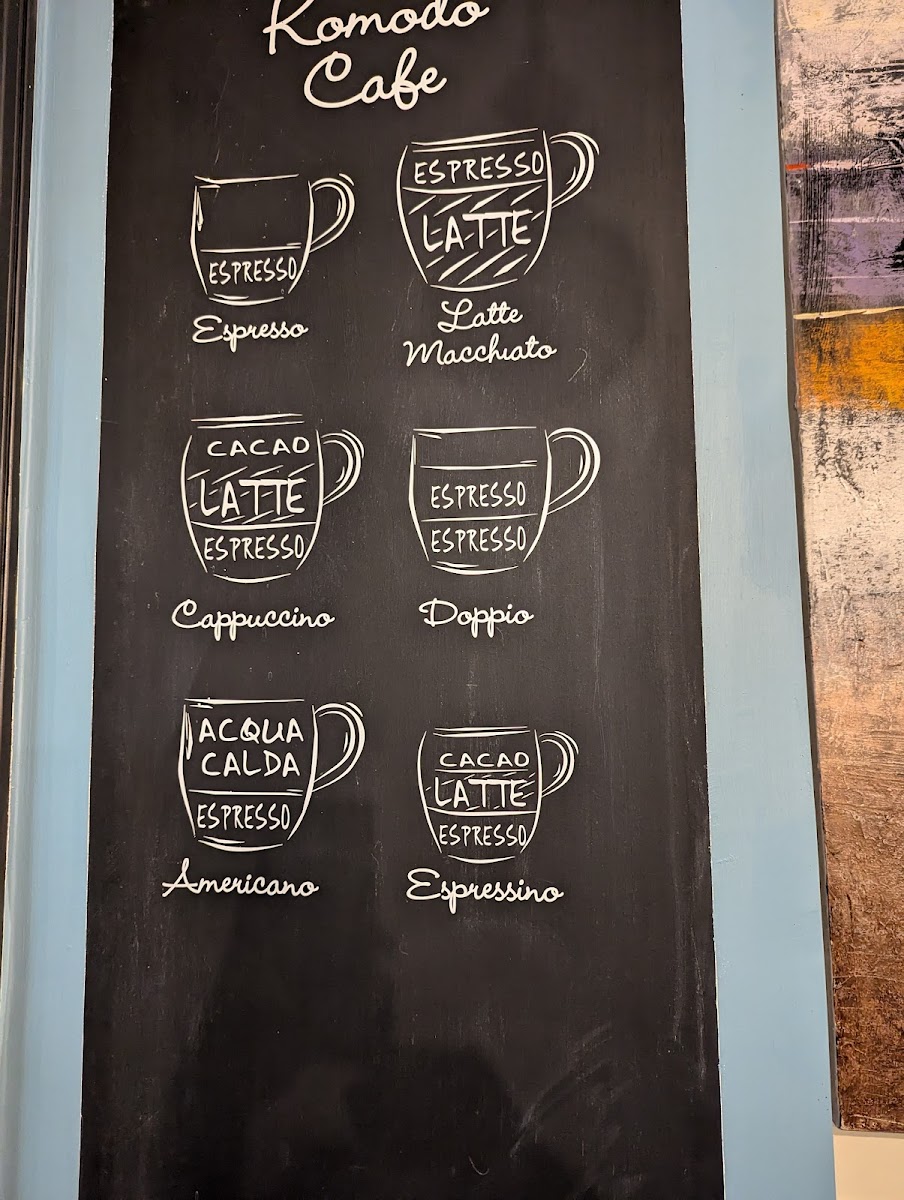 Komodo
Cafe
ESPRESSO
Espresso
ESPRESSO
LATTE
Latte
Macchiato
CACAO
LATTE
ESPRESSO
Cappuccino
ESPRESSO
ESPRESSO
Doppio
ACQUA
CALDA
ESPRESSO
Americano
CACAO
LATTE
ESPRESSO
Espressino